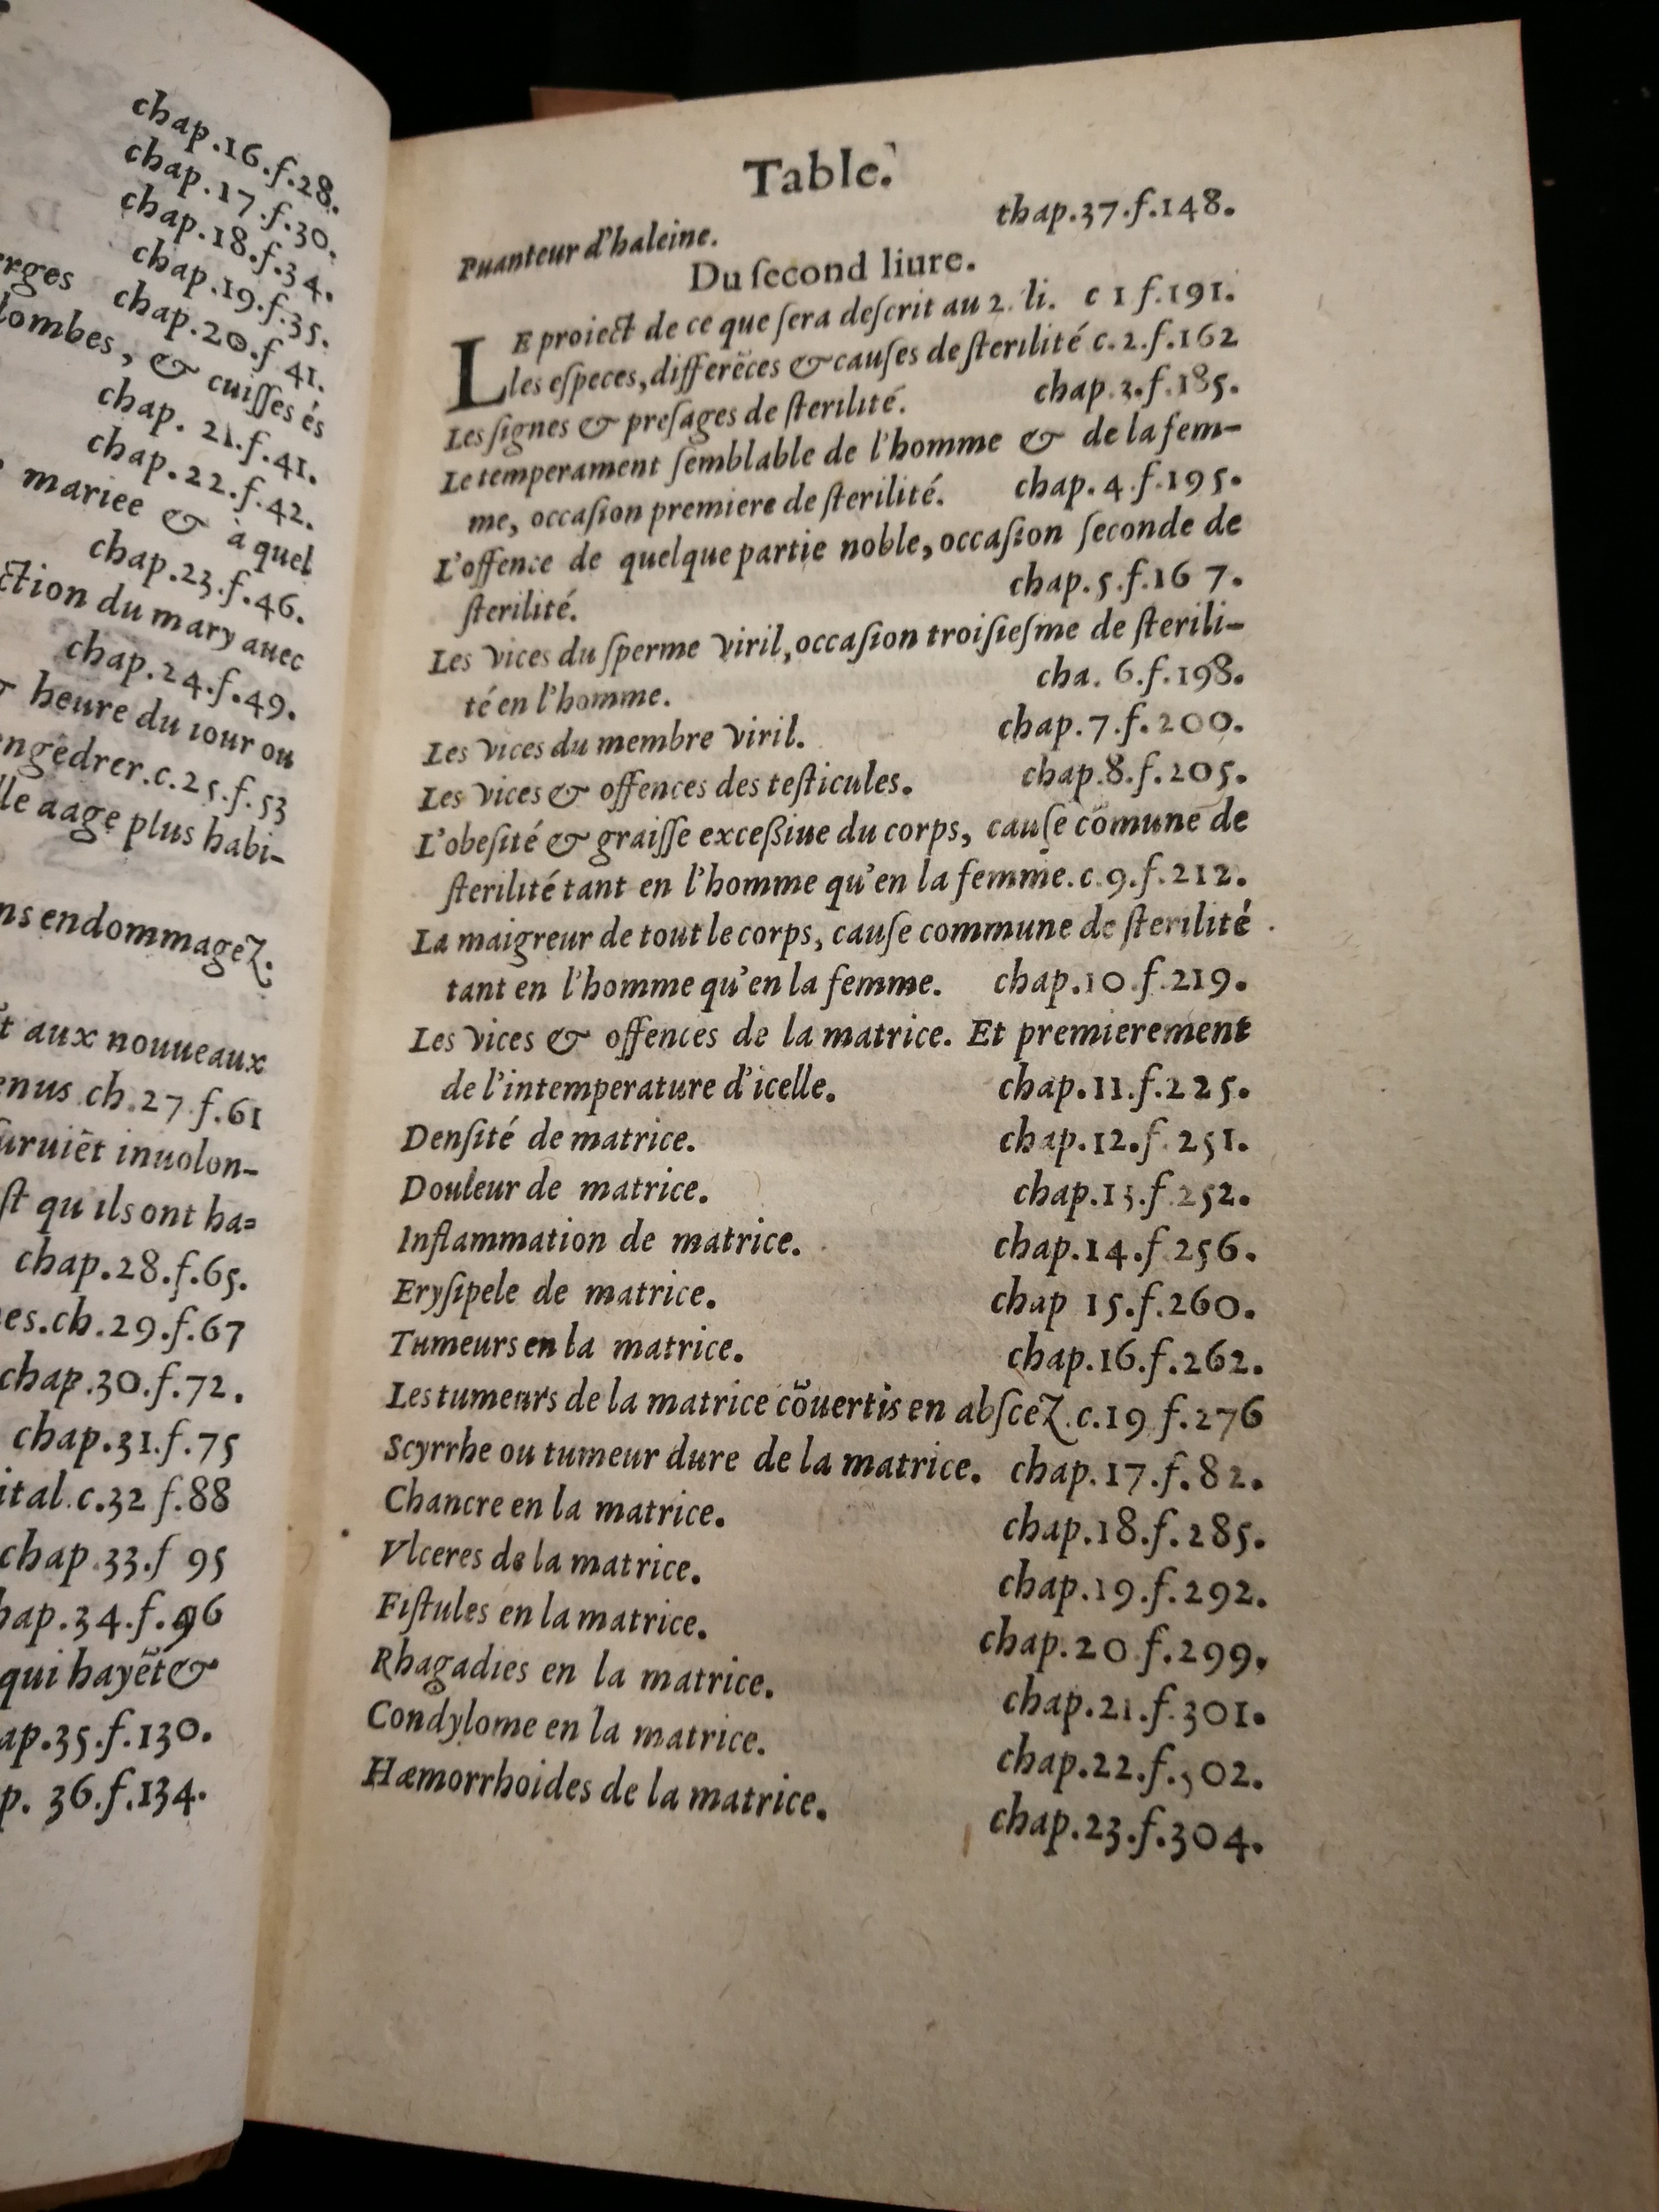 chap.16.f.28.
chap.17.f.30.
chap.18.f.34.
chap.19.f.35.
erges chap.20.f 41.
lombes, & cuiſſes és
chap. 21.f.41.
chap.22.f.42.
mariee & à quel
chap.23.f.46.
ction du mary auec
chap.24.f.49.
heure du iour ou
engēdrer.c.25.f.53
lle aage plus habi-
ns endommagez.
t aux nouueaux
enus ch.27.f.61
uruiēt inuolon-
ſt qu ils ont ha-
chap.28.f.65.
es.ch.29.f.67
chap.30.f.72.
chap.31.f.75
ital.c.32 f.88
chap.33.f 95
hap.34.f.96
qui hayēt &
ap.35.f.130.
p. 36.f.134.
Table.
Puanteur d'haleine. thap.37.f.148.
Du ſecond liure.
LE proiect de ce que ſera deſcrit au 2. li. c 1 f.191.
les eſpeces, differēces & cauſes de ſterilité c.2.f.162
Les ſignes & preſages de ſterilité. chap.3.f.185.
Le temperament ſemblable de l'homme & de la fem-
me, occaſion premiere de ſterilité. chap.4.f.195.
L'offence de quelque partie noble, occaſion ſeconde de
ſterilité. chap.5.f.16 7.
Les vices du ſperme viril, occaſion troiſieſme de ſterili-
té en l'homme. cha. 6.f.198.
Les vices du membre viril. chap.7.f.200.
Les vices & offences des teſticules. chap.8.f.205.
L'obeſité & graiſſe exceſsiue du corps, cauſe cōmune de
ſterilité tant en l'homme qu'en la femme.c.9.f.212.
La maigreur de tout le corps, cauſe commune de ſterilité
tant en l'homme qu'en la femme. chap.10.f.219.
Les vices & offences de la matrice. Et premierement
de l'intemperature d'icelle. chap.11.f.225.
Denſité de matrice. chap.12.f.251.
Douleur de matrice. chap.13.f.252.
Inflammation de matrice. chap.14.f.256.
Eryſipele de matrice. chap 15.f.260.
Tumeurs en la matrice. chap.16.f.262.
Les tumeurs de la matrice cōuertis en abſcez.c.19 f.276
Scyrrhe ou tumeur dure de la matrice. chap.17.f.82.
Chancre en la matrice. chap.18.f.285.
Vlceres de la matrice. chap.19.f.292.
Fiſtules en la matrice. chap.20.f.299.
Rhagadies en la matrice. chap.21.f.301.
Condylome en la matrice. chap.22.f.302.
Hæmorrhoides de la matrice. chap.23.f.304.